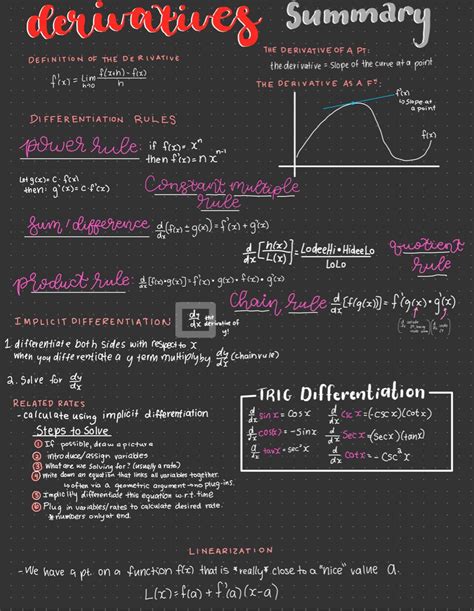 derivatives Summary
DEFINITION OF THE DERIVATIVE
f'(x) = Lim h→0 f(x+h) - f(x) / h
THE DERIVATIVE OF A PT:
the derivative = slope of the curve at a point
THE DERIVATIVE AS A Fⁿ:
f'(x)
↳ slope at
a point
f(x)
DIFFERENTIATION RULES
power rule: if f(x) = xⁿ
then f'(x) = n xⁿ⁻¹
Let g(x) = C · f(x)
then: g'(x) = C · f'(x)
Constant multiple
rule
sum/difference d/dx [f(x) ± g(x)] = f'(x) + g'(x)
d/dx [h(x)/L(x)] = LodeeHi • HideeLo / LoLo
quotient
rule
product rule: d/dx [f(x) • g(x)] = f'(x) • g(x) + f(x) • g'(x)
chain rule d/dx [f(g(x))] = f'(g(x)) • g'(x)
IMPLICIT DIFFERENTIATION dy/dx the derivative of y!
1. differentiate both sides with respect to x
when you differentiate a y term multiply by dy/dx (chain rule)
2. Solve for dy/dx
RELATED RATES
- calculate using implicit differentiation
Steps to Solve
1 If possible, draw a picture
2 introduce/assign variables
3 What are we solving for? (usually a rate)
4 Write down an equation that links all variables together.
↳ often via a geometric argument → no plug-ins.
5 Implicitly differentiate this equation w.r.t. time
6 Plug in variables/rates to calculate desired rate.
* numbers only at end.
TRIG Differentiation
d/dx sin x = cos x d/dx csc x = (-csc x)(cot x)
d/dx cos(x) = -sin x d/dx sec x = (sec x)(tan x)
d/dx tan x = sec² x d/dx cot x = -csc² x
LINEARIZATION
- We have a pt. on a function f(x) that is *really* close to a "nice" value a.
L(x) = f(a) + f'(a)(x-a)